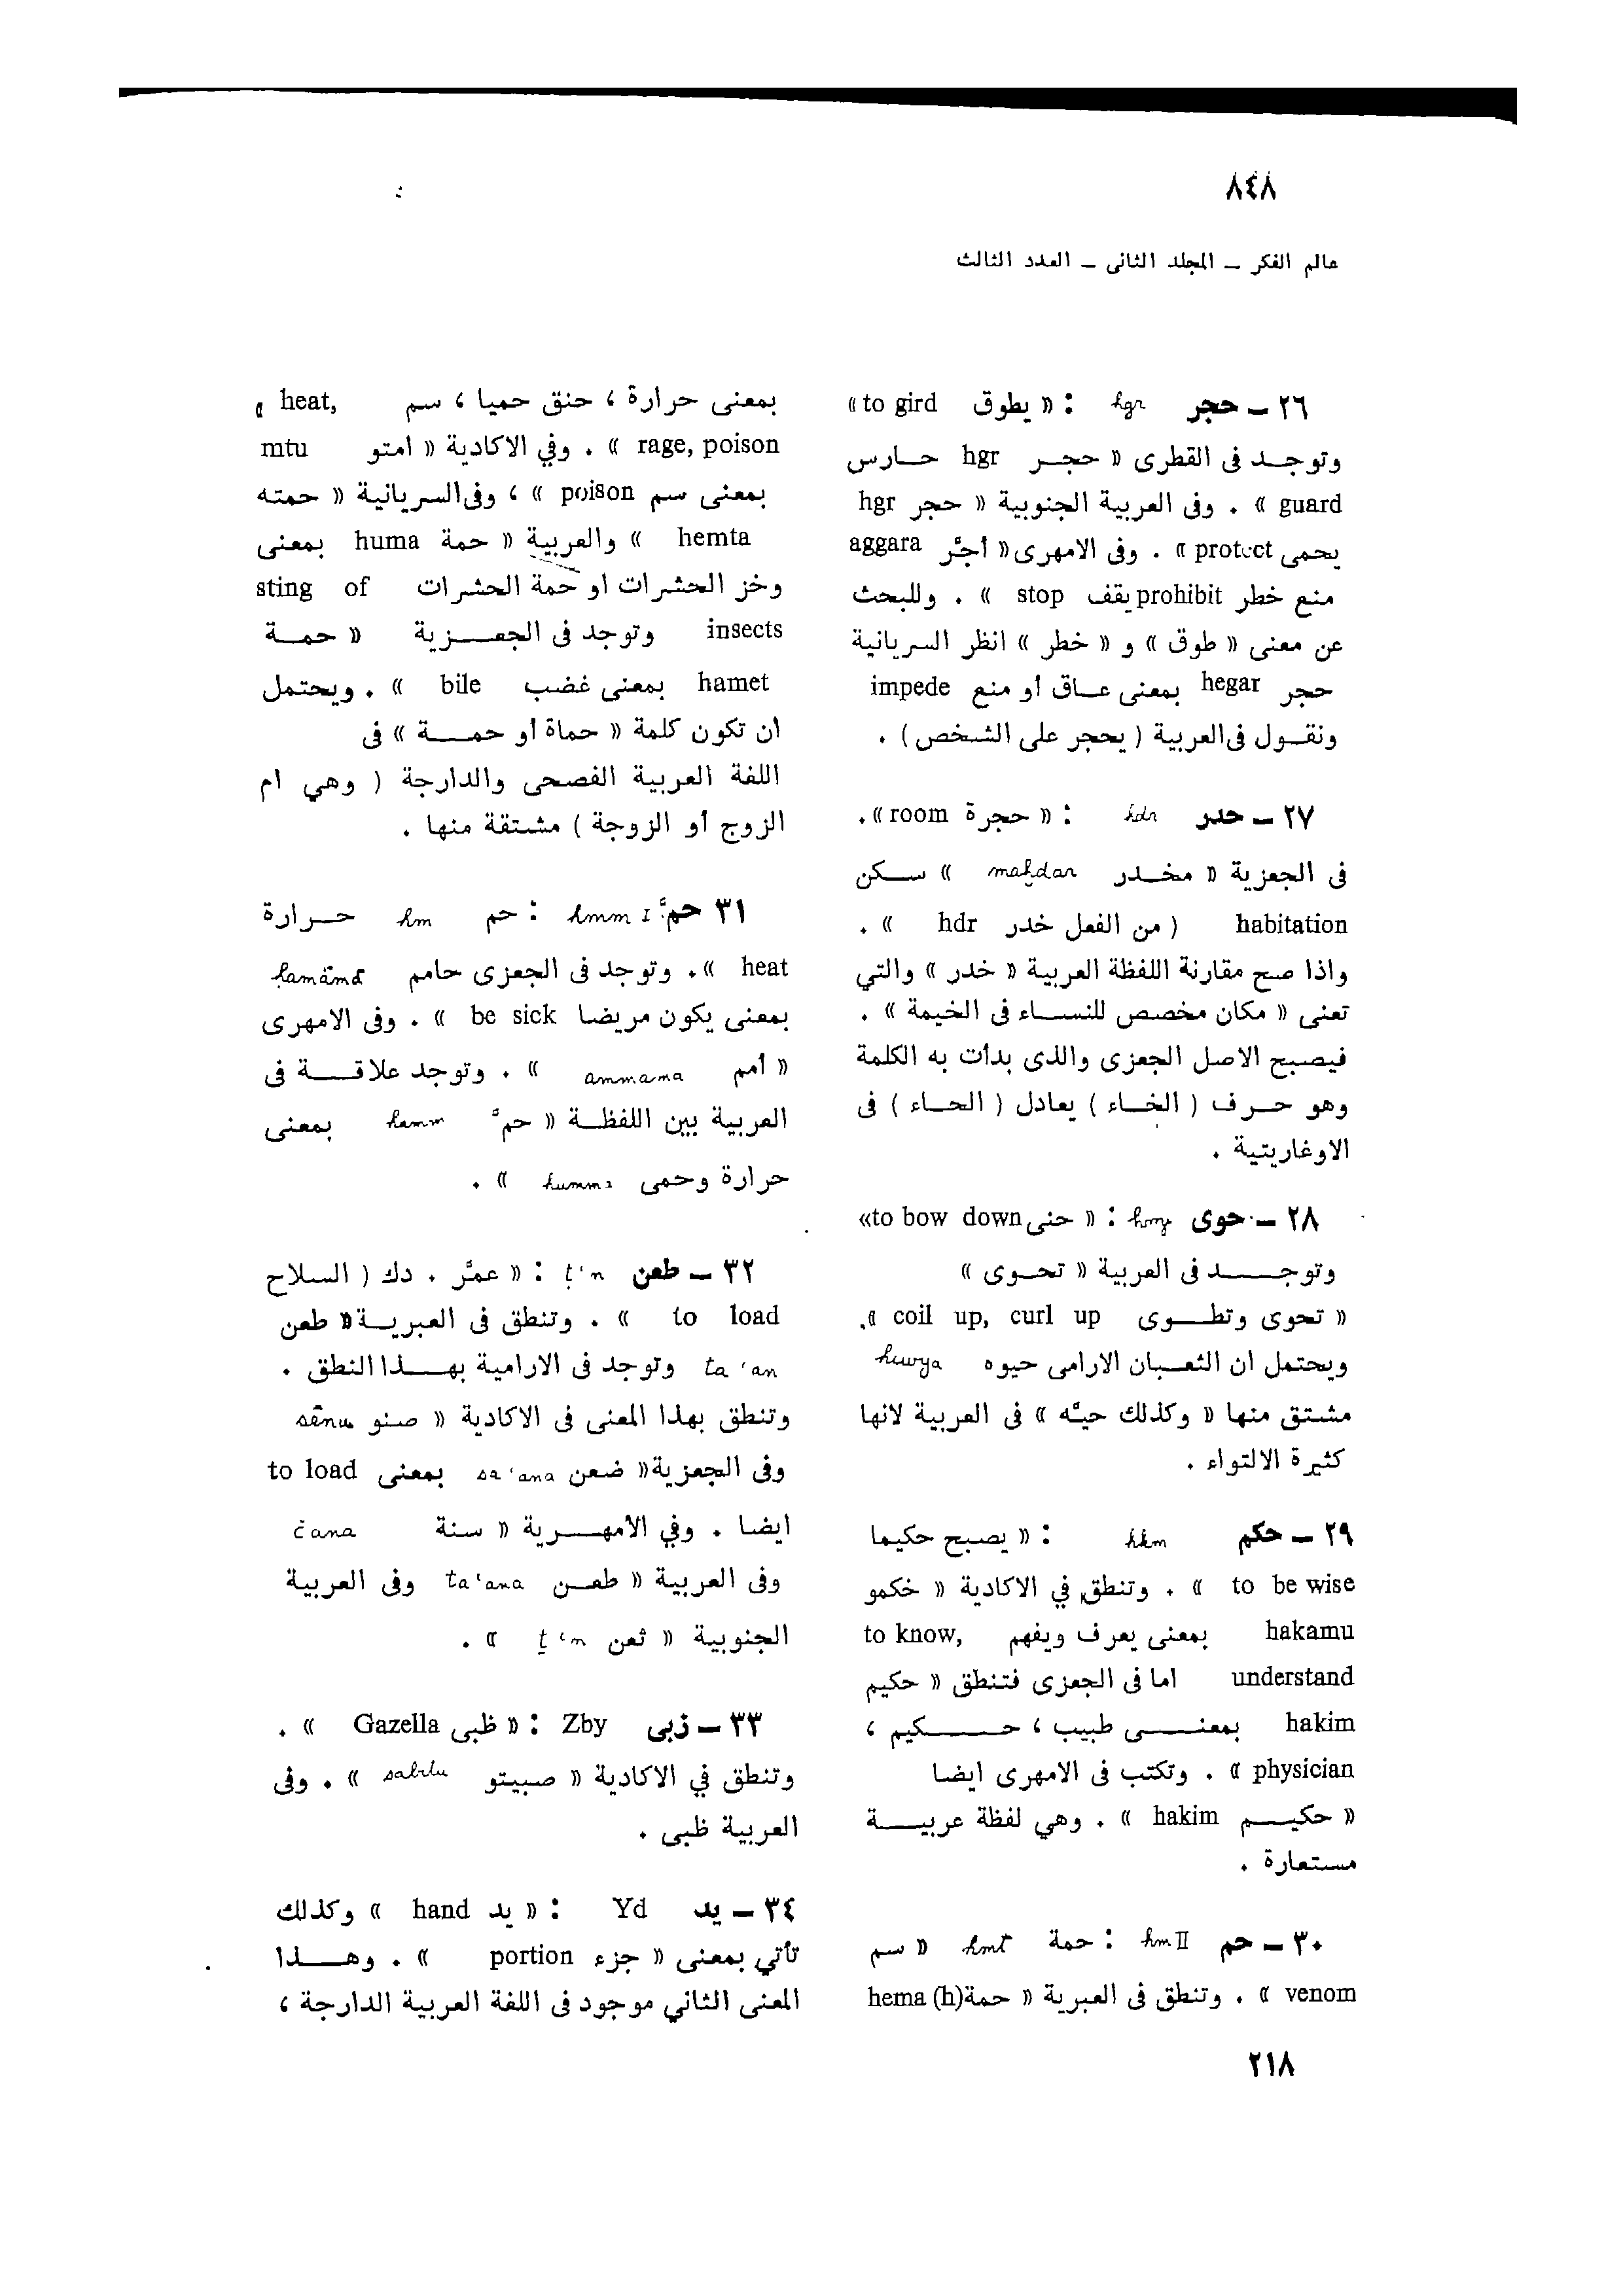 ٨٤٨
عالم الفكر – المجلد الثانى – العدد الثالث
٢٦ – حجر hgr : « يطوق to gird »
وتوجد فى القطرى « حجر hgr حارس
guard » . وفى العربية الجنوبية « حجر hgr
يحمى protect » . وفى الامهرى « أجَّر aggara
منع خطر prohibit يقف stop » . وللبحث
عن معنى « طوق » و « خطر » انظر السريانية
حجر hegar بمعنى عاق أو منع impede
ونقول فى العربية ( يحجر على الشخص ) .
٢٧ – حدر hdr : « حجرة room » .
فى الجعزية « مخدر mahdar » سكن
habitation ( من الفعل خدر hdr » .
واذا صح مقارنة اللفظة العربية « خدر » والتي
تعنى « مكان مخصص للنساء فى الخيمة » .
فيصبح الاصل الجعزى والذى بدأت به الكلمة
وهو حرف ( الخاء ) يعادل ( الحاء ) فى
الاوغاريتية .
٢٨ – حوى hwy : « حنى to bow down »
وتوجد فى العربية « تحوى »
« تحوى وتطوى coil up, curl up » .
ويحتمل ان الثعبان الارامى حيوه hewya
مشتق منها « وكذلك حيَّه » فى العربية لانها
كثيرة الالتواء .
٢٩ – حكم hkm : « يصبح حكيما
to be wise » . وتنطق في الاكادية « خكمو
hakamu بمعنى يعرف ويفهم to know,
understand اما فى الجعزى فتنطق « حكيم
hakim بمعنى طبيب ، حكيم ،
physician » . وتكتب فى الامهرى ايضا
« حكيم hakim » . وهي لفظة عربية
مستعارة .
٣٠ – حم hm II : حمة hmt « سم
venom » . وتنطق فى العبرية « حمة hema (h)
بمعنى حرارة ، حنق حميا ، سم heat, و
rage, poison » . وفي الاكادية « امتو mtu
بمعنى سم poison » ، وفى السريانية « حمته
hemta » والعربية « حمة huma بمعنى
وخز الحشرات او حمة الحشرات sting of
insects وتوجد فى الجعزية « حمة
hamet بمعنى غضب bile » . ويحتمل
ان تكون كلمة « حماة أو حمة » فى
اللغة العربية الفصحى والدارجة ( وهي ام
الزوج أو الزوجة ) مشتقة منها .
٣١ حمَّ hmm I : حم hm حرارة
heat » . وتوجد فى الجعزى حامم hamäma
بمعنى يكون مريضا be sick » . وفى الامهرى
« أمم ammama » . وتوجد علاقة فى
العربية بين اللفظة « حمَّ hamm بمعنى
حرارة وحمى humma » .
٣٢ – طعن t'n : « عمَّر . دك ( السلاح
to load » . وتنطق فى العبرية « طعن
ta 'an وتوجد فى الارامية بهذا النطق .
وتنطق بهذا المعنى فى الاكادية « صنو sênu
وفى الجعزية « ضعن sa 'ana بمعنى to load
ايضا . وفي الامهرية « سنة čana
وفى العربية « طعن ta'ana وفى العربية
الجنوبية « ثعن t'n » .
٣٣ – ذبى Zby : « ظبى Gazella » .
وتنطق في الاكادية « صبيتو sabitu » . وفى
العربية ظبى .
٣٤ – يد Yd : « يد hand » وكذلك
تأتي بمعنى « جزء portion » . وهذا
المعنى الثاني موجود فى اللغة العربية الدارجة ،
٢١٨